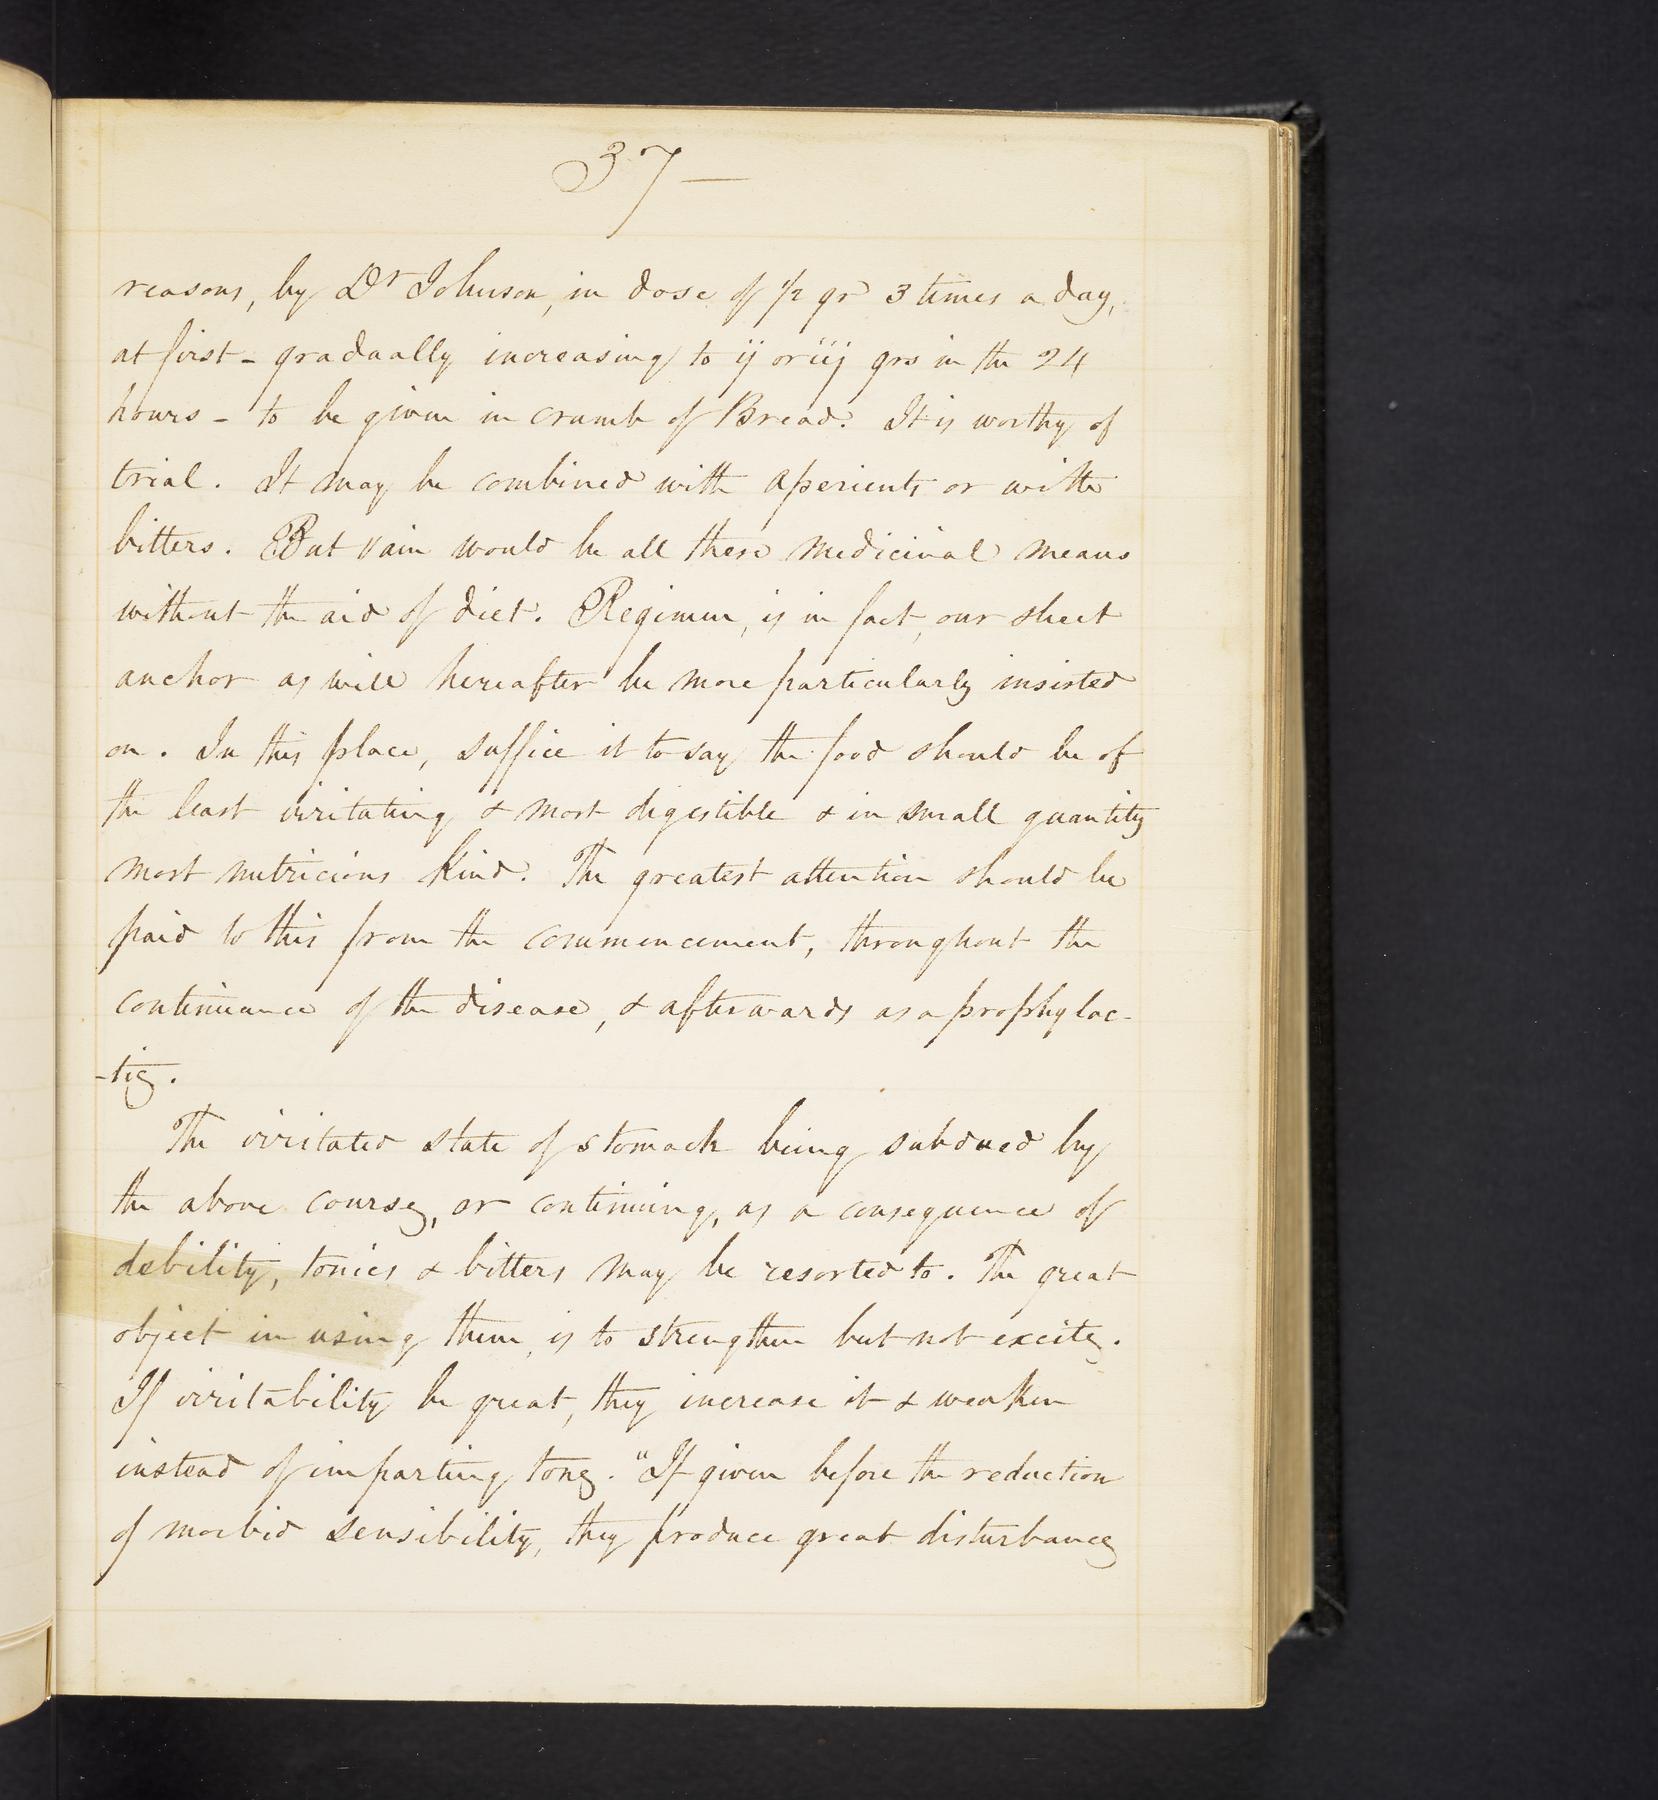 37—
reasons, by Dr Johnson, in dose of 1/2 gr 3 times a day,
at first - gradually increasing to ij or iij grs in the 24
hours - to be given in crumb of Bread. It is worthy of
trial. It may be combined with aperients or with
bitters. But vain would be all these medicinal means
without the aid of diet. Regimen, is in fact, our sheet
anchor as will hereafter be more particularly insisted
on. In this place, suffice it to say the food should be of
the least irritating & most digestible & in small quantity
most nutricious kind. The greatest attention should be
paid to this from the commencement, throughout the
continuance of the disease, & afterwards as a prophylac-
-tic.
The irritated state of stomach being subdued by
the above course, or continuing, as a consequence of
debility, tonics & bitters may be resorted to. The great
object in using them, is to strengthen but not excite.
If irritability be great, they increase it & weaken
instead of imparting tone. "If given before the reduction
of morbid sensibility, they produce great disturbance